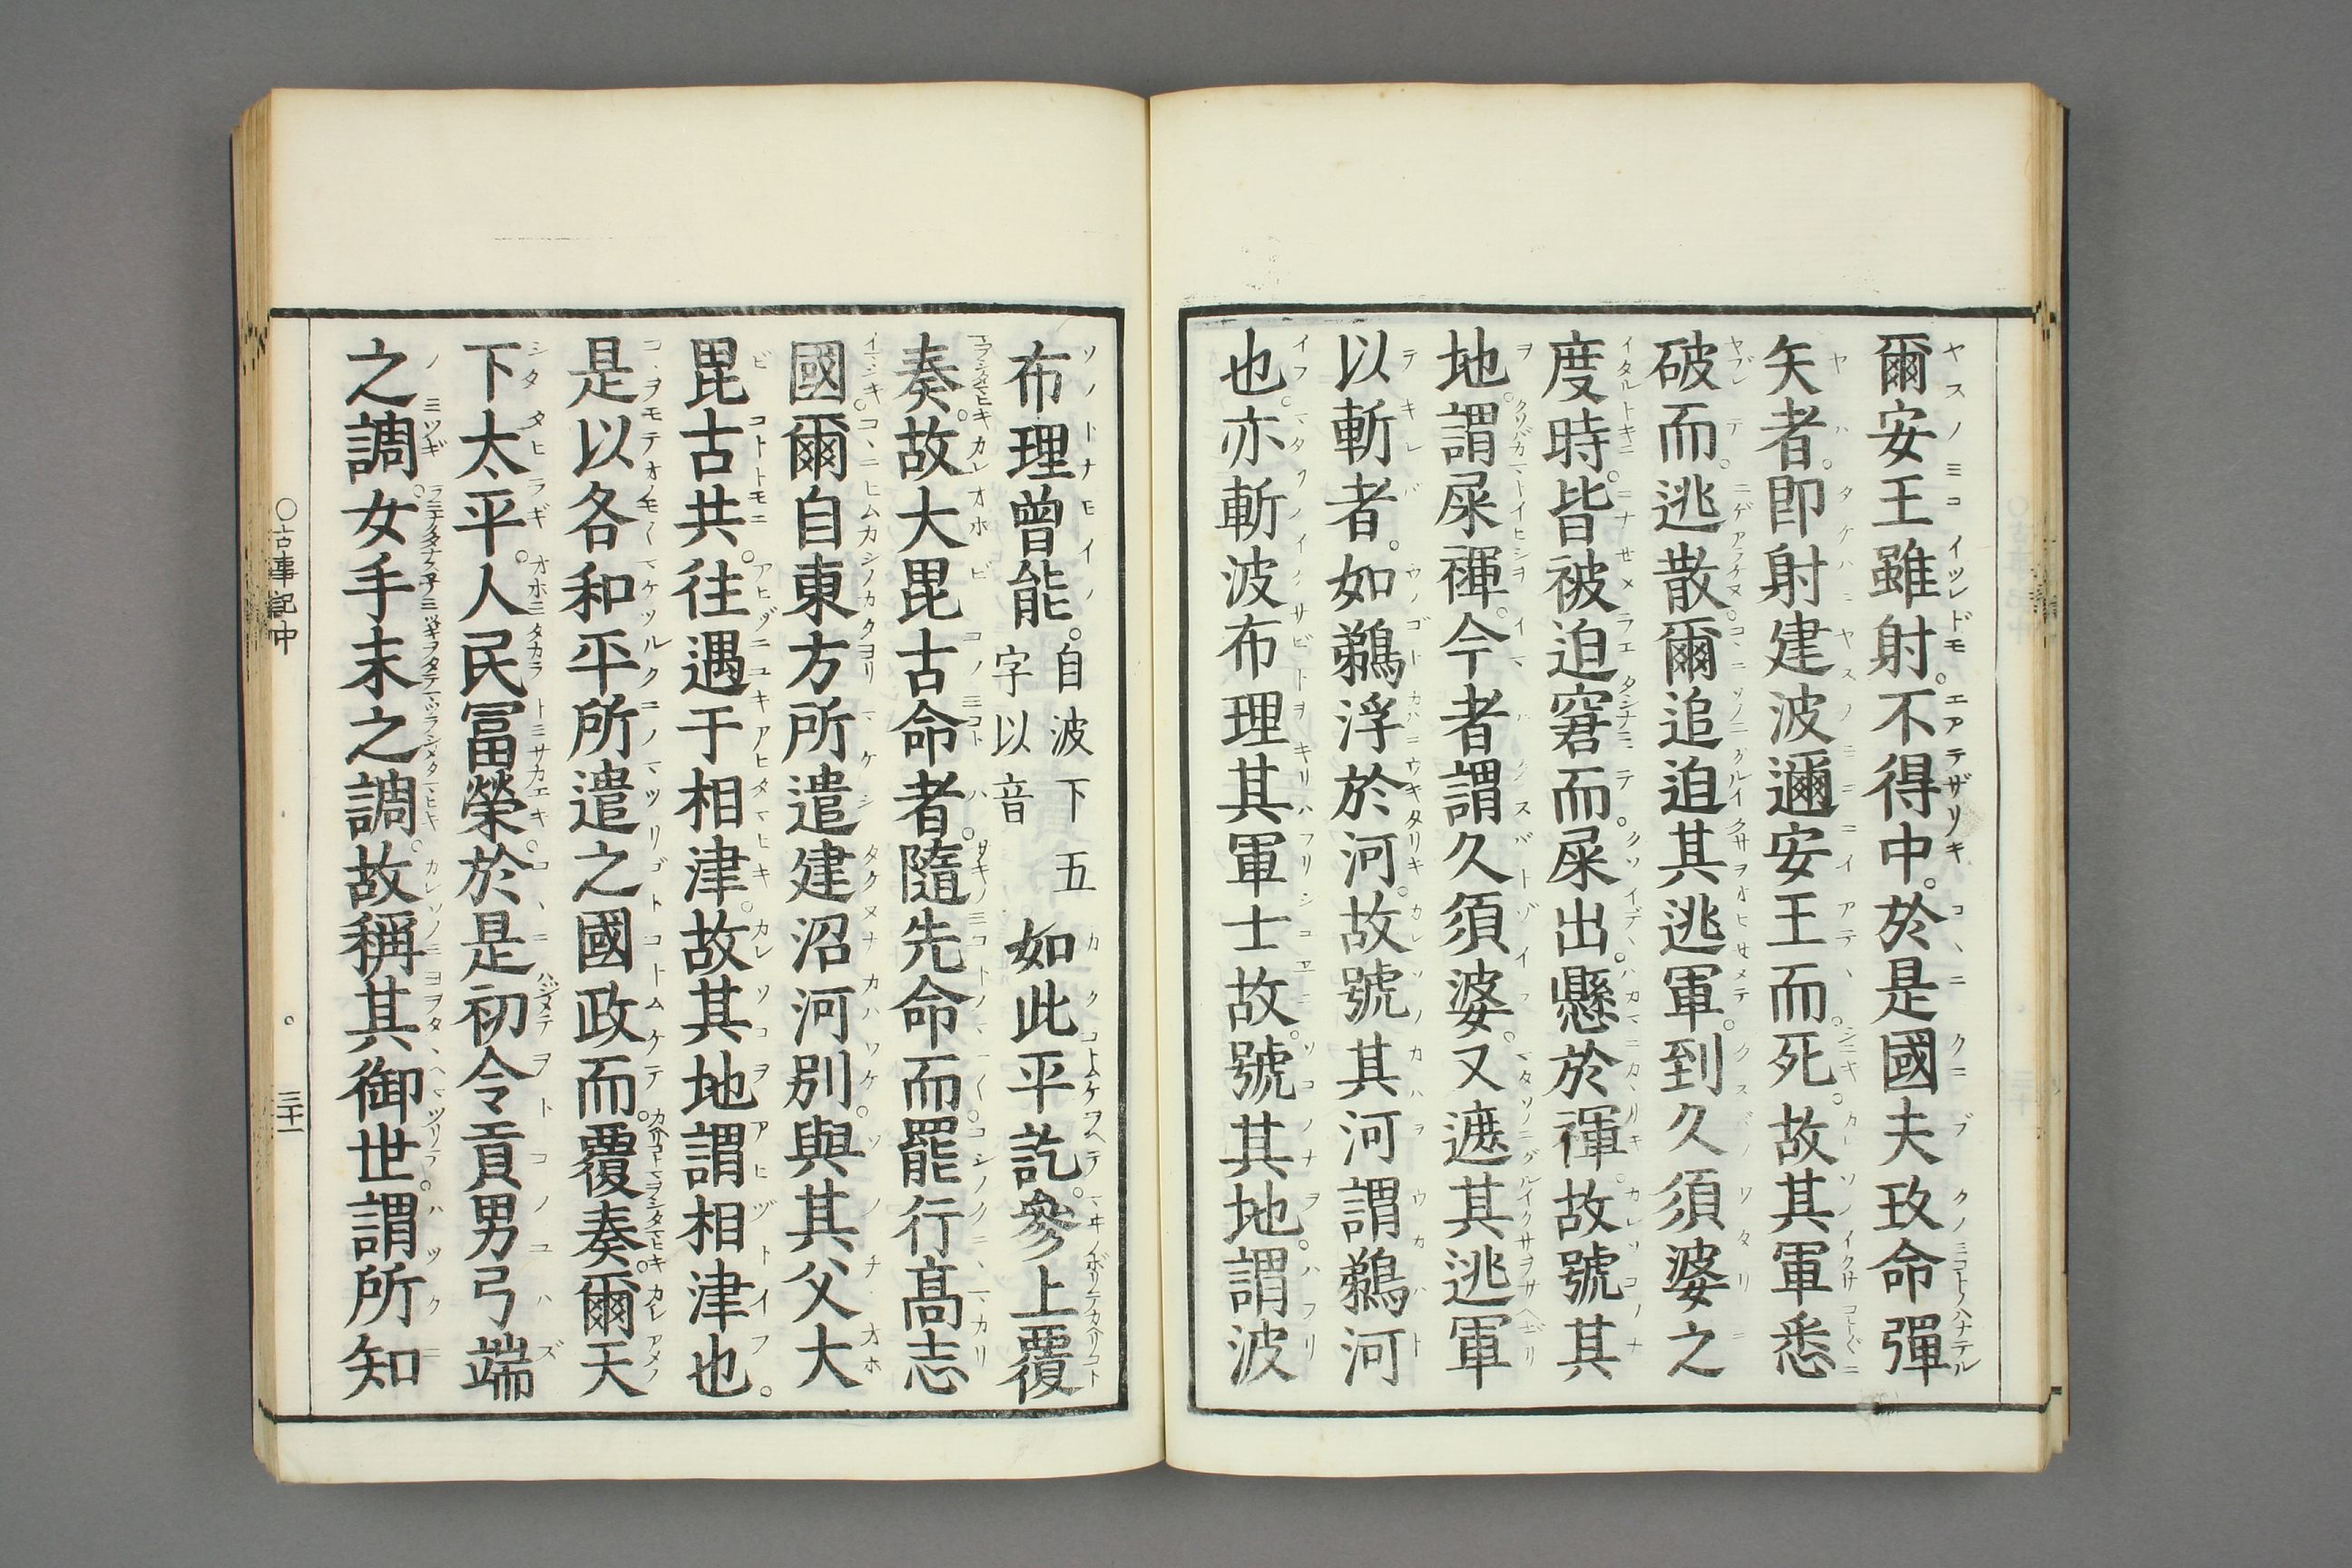 爾安王雖射。不得中。於是國夫玖命彈
矢者。即射建波邇安王而。死。故其軍悉
破而。逃散。爾追迫其逃軍。到久須婆之
度時。皆被迫窘而。屎出。懸於褌。故號其
地。謂屎褌。今者謂久須婆。又遮其逃軍
以斬者。如鵜浮於河。故號其河謂鵜河
也。亦斬波布理其軍士故。號其地。謂波
布理曽能。自波下五字以音 如此平訖。參上覆
奏。故大毘古命者。隨先命而罷行髙志
國。爾自東方所遣建沼河別。與其父大
毘古共。往遇于相津。故其地謂相津也。
是以各和平所遣之國政而。覆奏。爾天
下太平。人民冨榮。於是初令貢男弓端
之調。女手末之調。故稱其御世。謂所知
○古事記中
三十一